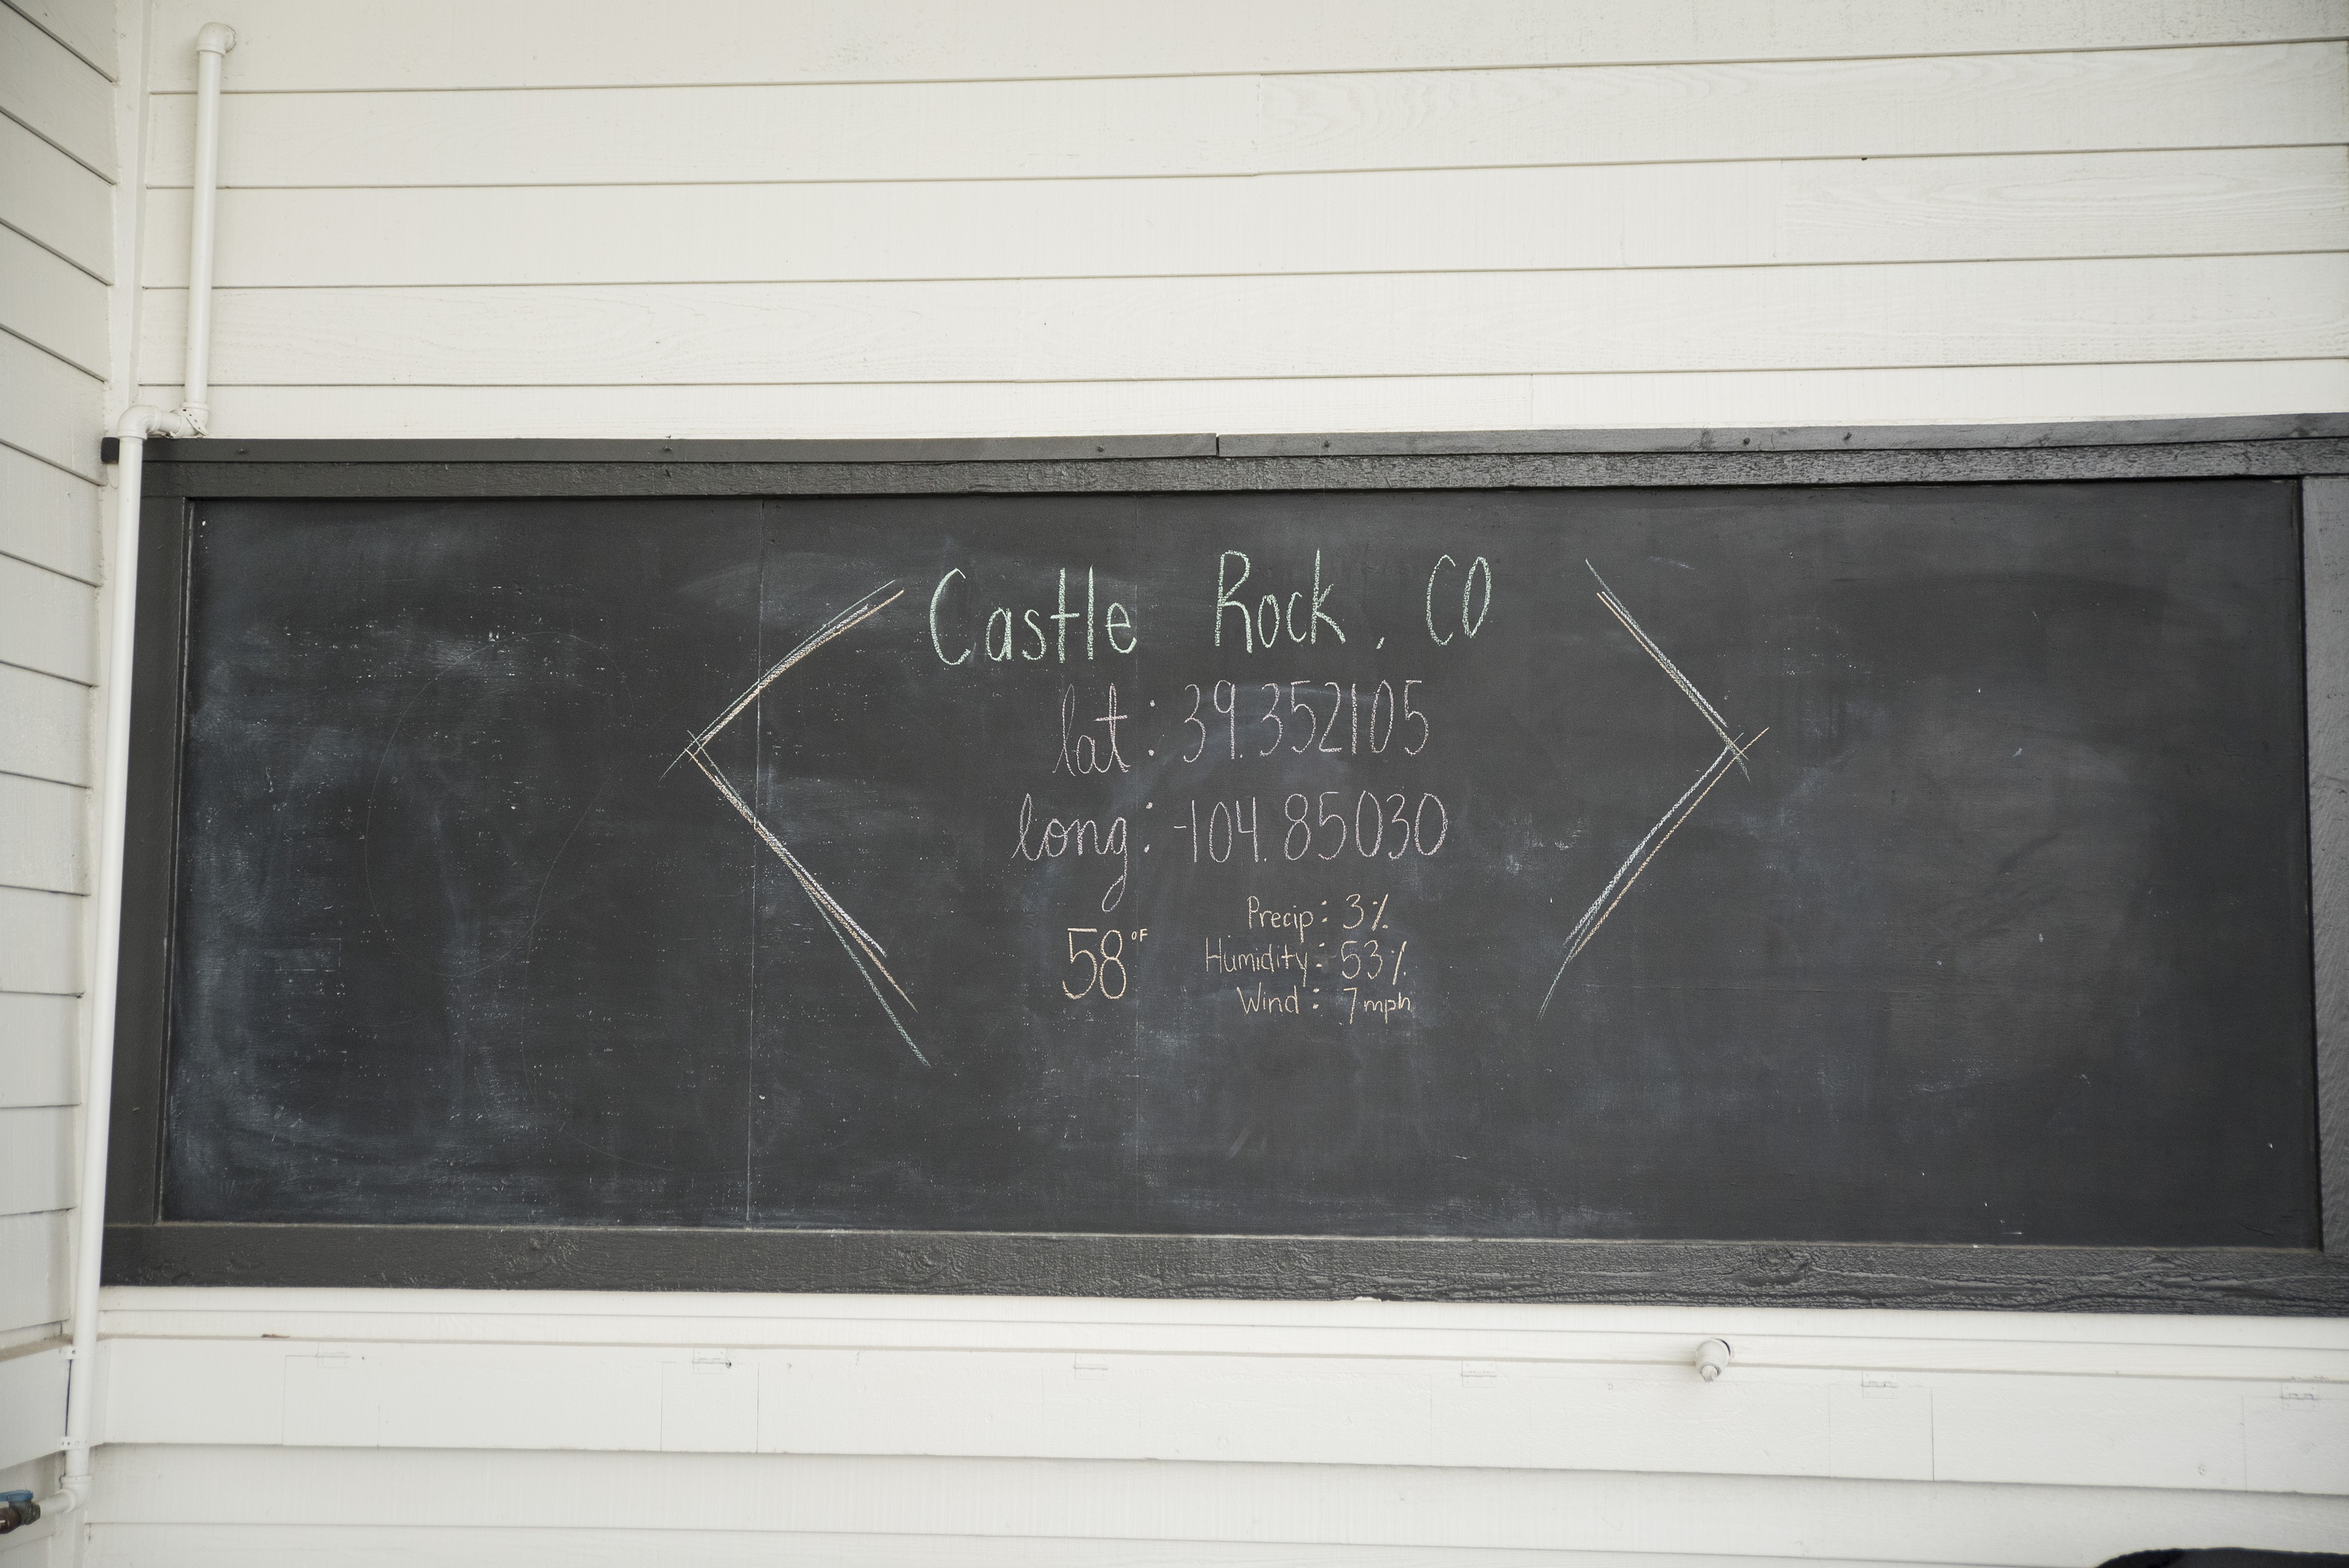 Castle Rock, CO
lat: 39.352105
long: -104.85030
58°F
Precip: 3%
Humidity: 53%
Wind: 7mph